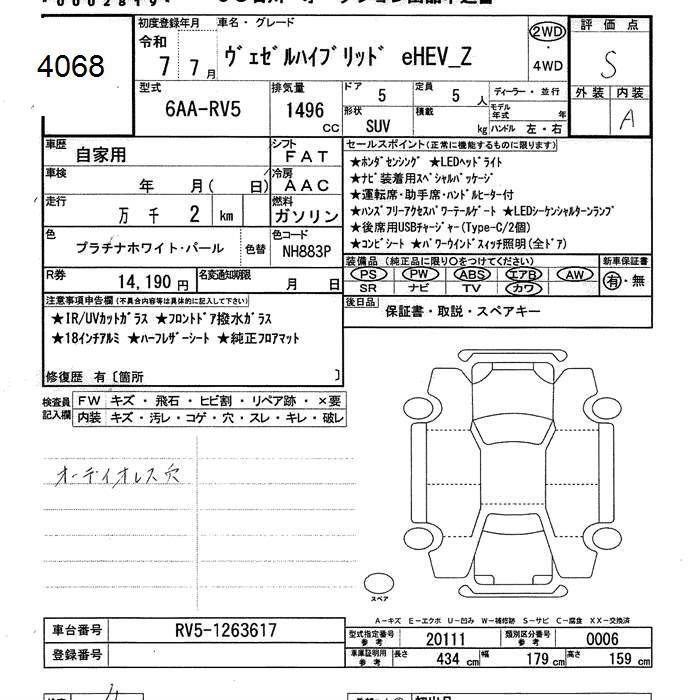 4068
初度登録年月 車名・グレード
令和 7 7月 ヴェゼルハイブリッド eHEV_Z
2WD
・
4WD
評価点
S
外装 内装
A
型式 6AA-RV5
排気量 1496 CC
ドア 5 定員 5 人
形状 SUV 積載 kg
ディーラー・並行
モデル年式 年
ハンドル 左・右
車歴 自家用
シフト FAT
車検 年 月( 日)
冷房 AAC
走行 万 千 2 km
燃料 ガソリン
色 プラチナホワイト・パール 色替
色コード NH883P
R券 14,190 円 名変通知期限 月 日
セールスポイント(正常に機能するものに限ります)
★ホンダセンシング ★LEDヘッドライト
★ナビ装着用スペシャルパッケージ
★運転席・助手席・ハンドルヒーター付
★ハンズフリーアクセスパワーテールゲート ★LEDシーケンシャルターンランプ
★後席用USBチャージャー(Type-C/2個)
★コンビシート ★パワーウインドスイッチ照明(全ドア)
装備品 (純正品に限り○をつけてください) 新車保証書
PS PW ABS エアB AW 有・無
SR ナビ TV カワ
後日品 保証書・取説・スペアキー
注意事項申告欄(不具合内容等は具体的に記入して下さい)
★IR/UVカットガラス ★フロントドア撥水ガラス
★18インチアルミ ★ハーフレザーシート ★純正フロアマット
修復歴 有〔箇所 〕
検査員記入欄
FW キズ・飛石・ヒビ割・リペア跡・×要
内装 キズ・汚レ・コゲ・穴・スレ・キレ・破レ
オーディオレス穴
スペア
A-キズ E-エクボ U-凹み W-補修跡 S-サビ C-腐食 XX-交換済
車台番号 RV5-1263617
登録番号
型式指定番号 参考 20111 類別区分番号 参考 0006
車庫証明用 参考 長さ 434 cm 幅 179 cm 高さ 159 cm